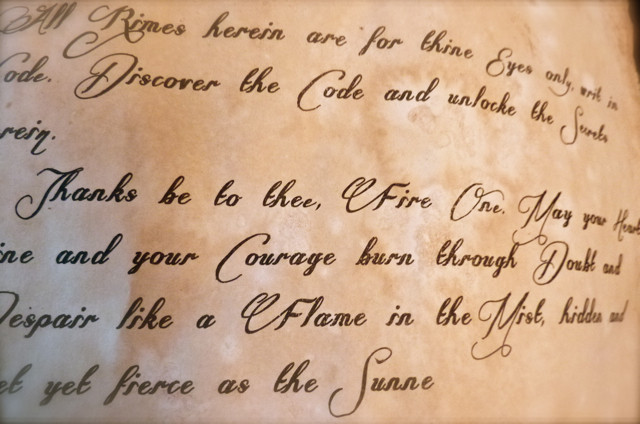 All Rimes herein are for thine Eyes only, writ in
Code. Discover the Code and unlocke the Secrets
rein.
Thanks be to thee, Fire One. May your Heart
ine and your Courage burn through Doubt and
Despair like a Flame in the Mist, hidden and
et yet fierce as the Sunne